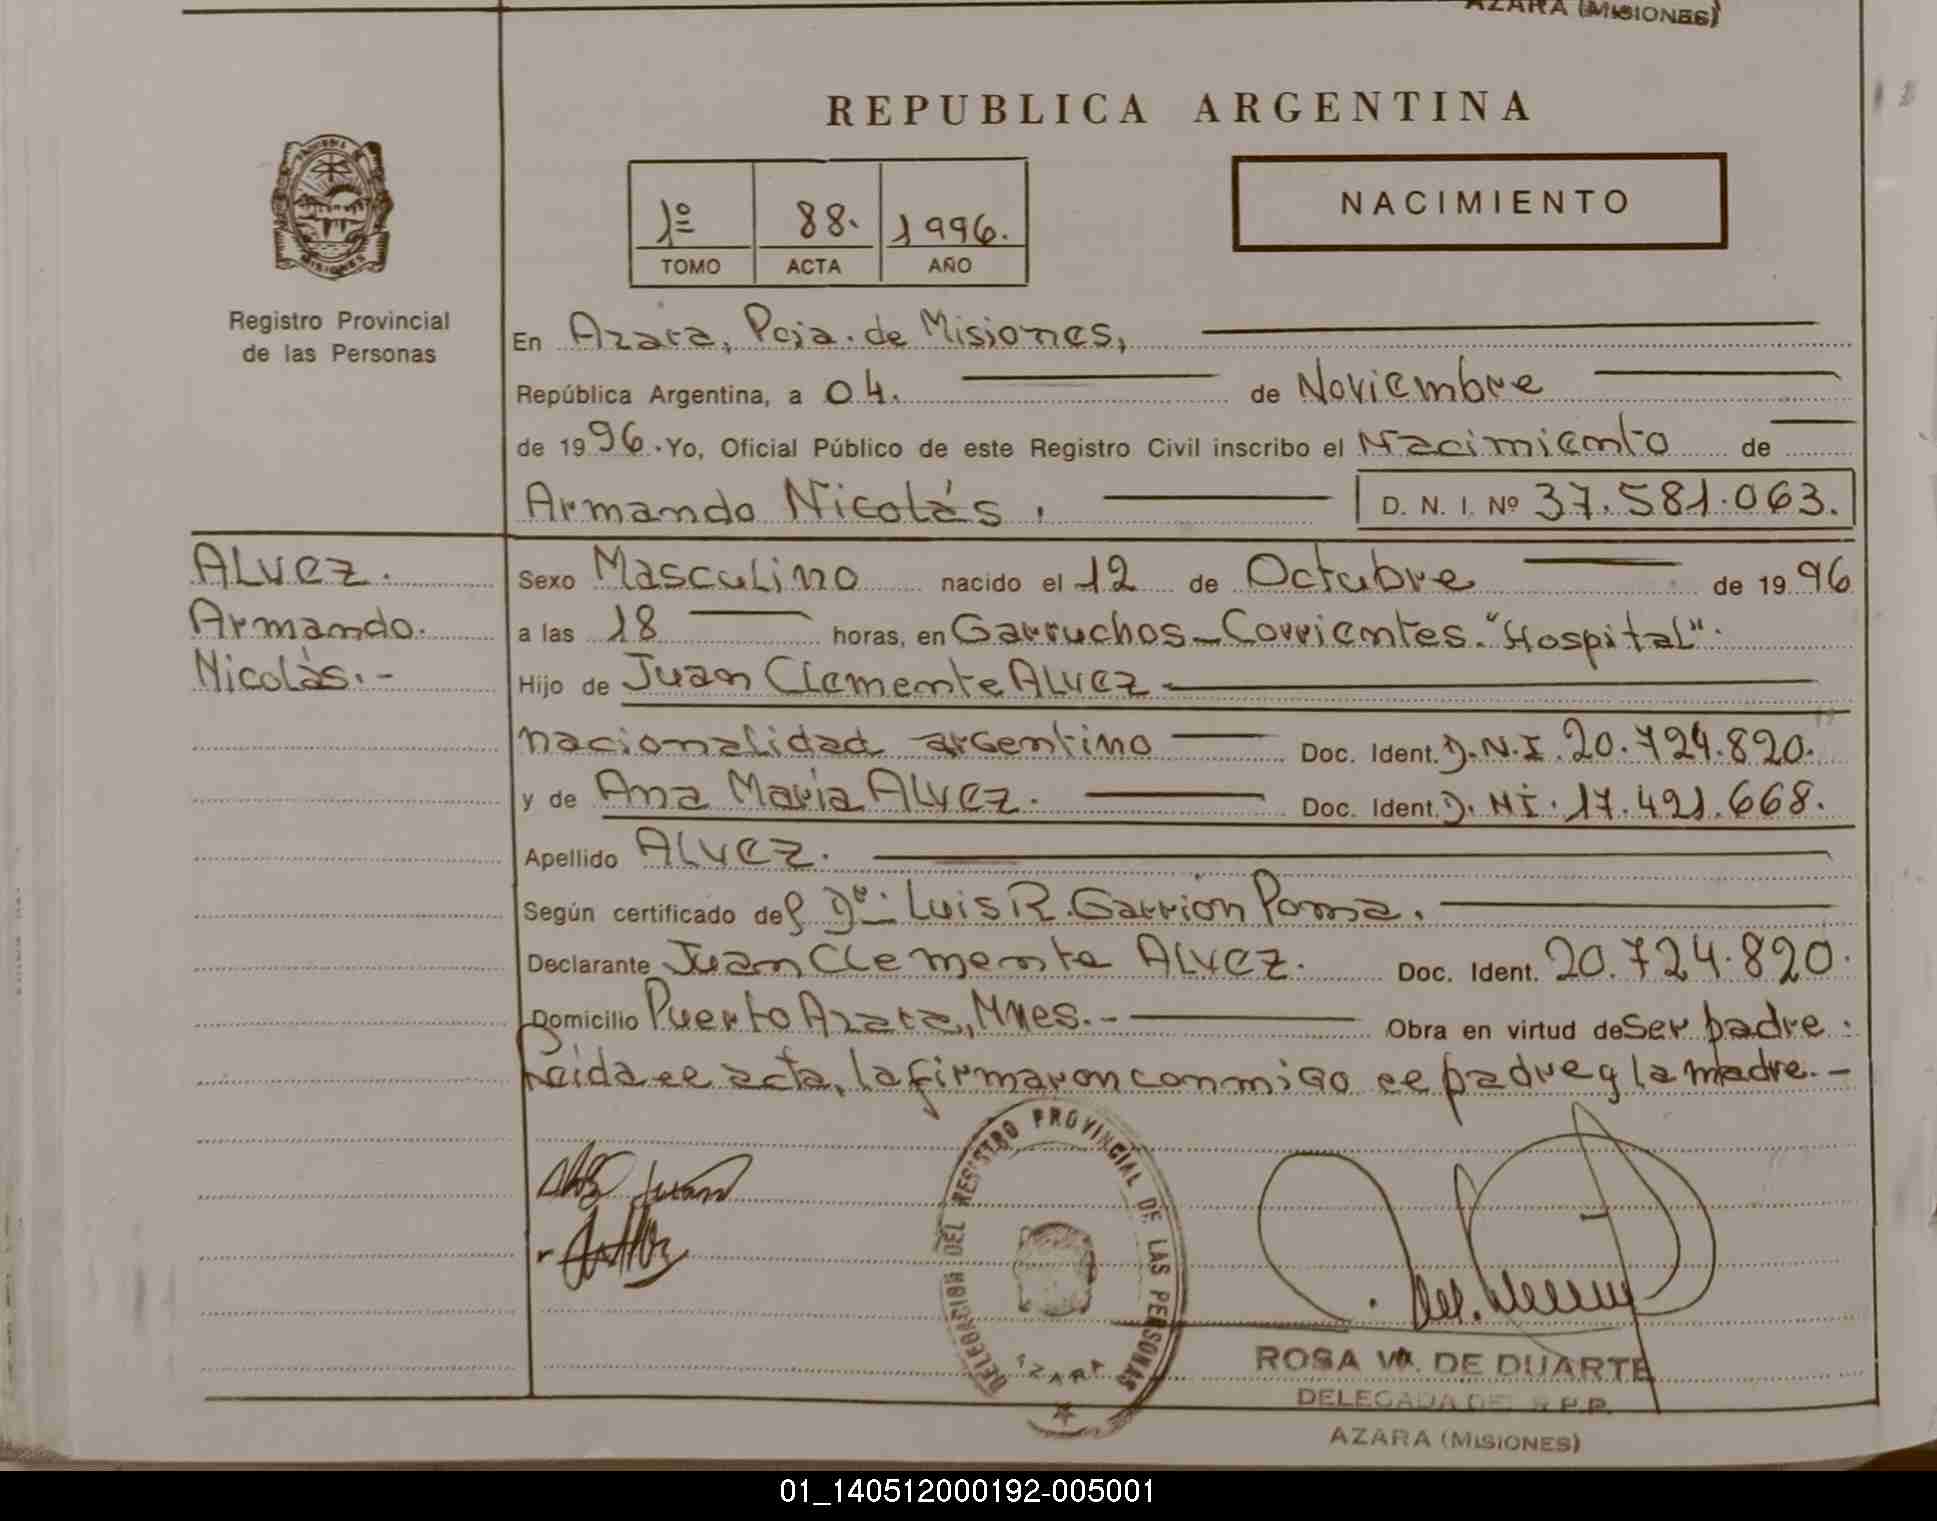 AZARA (MISIONES)
REPUBLICA ARGENTINA
NACIMIENTO
1º 88. 1996.
TOMO ACTA AÑO
MISIONES
Registro Provincial
de las Personas
En Azara, Pcia. de Misiones,
República Argentina, a 04. de Noviembre
de 1996. Yo, Oficial Público de este Registro Civil inscribo el Nacimiento de
Armando Nicolás. D. N. I. Nº 37.581.063.
ALVEZ.
Armando.
Nicolás.-
Sexo Masculino nacido el 12 de Octubre de 1996
a las 18 horas, en Garruchos-Corrientes."Hospital".
Hijo de Juan Clemente ALVEZ
nacionalidad argentino Doc. Ident. D.N.I. 20.724.820.
y de Ana María ALVEZ. Doc. Ident. D.NI. 17.491.668.
Apellido ALVEZ.
Según certificado del Dr. Luis R. Garrion Poma.
Declarante Juan Clemente ALVEZ. Doc. Ident. 20.724.820.
Domicilio Puerto Azara, Mnes.- Obra en virtud de ser padre.
Leida el acta, la firmaron conmigo el padre y la madre.-
Juan
DELEGACION DEL REGISTRO PROVINCIAL DE LAS PERSONAS
AZARA
ROSA Vª. DE DUARTE
DELEGADA DEL R.P.P.
AZARA (MISIONES)
01_140512000192-005001